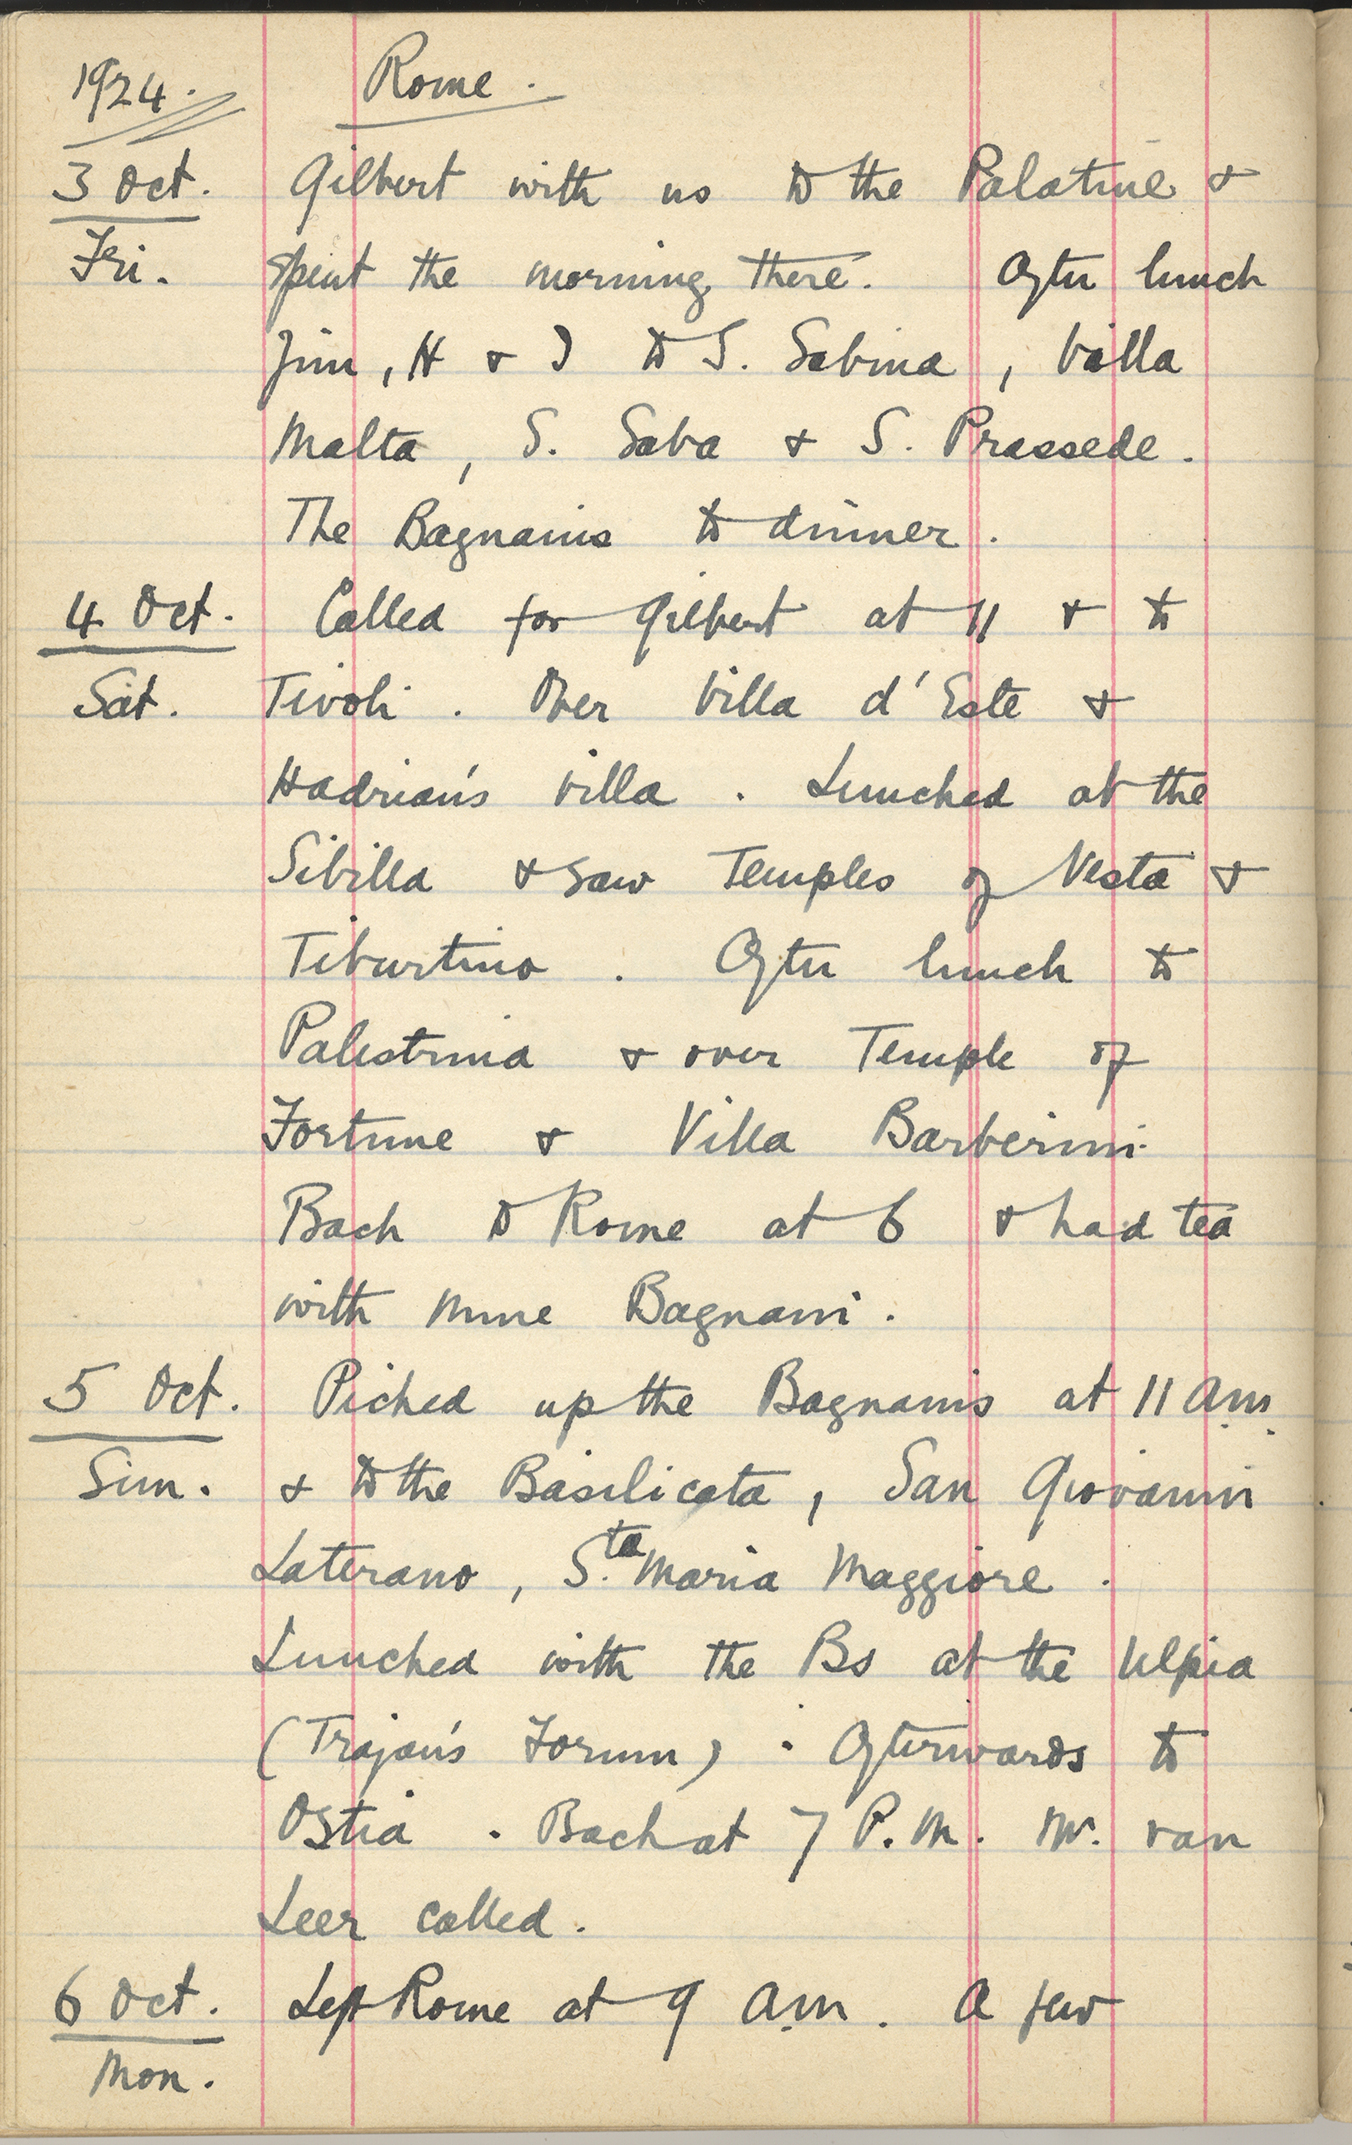 1924. Rome.
3 Oct. Gilbert with us to the Palatine &
Fri. spent the morning there. After lunch
Jim, H & I to S. Sabina, Villa
Malta, S. Saba & S. Prassede.
The Bagnanis to dinner.
4 Oct. Called for Gilbert at 11 & to
Sat. Tivoli. Over Villa d'Este &
Hadrian's villa. Lunched at the
Sibilla & saw Temples of Vesta &
Tiburtino. After lunch to
Palestrina & over Temple of
Fortune & Villa Barberini.
Back to Rome at 6 & had tea
with Mme Bagnani.
5 Oct. Picked up the Bagnanis at 11 a.m.
Sun. & to the Basilicata, San Giovanni
Laterano, S.ta Maria Maggiore.
Lunched with the Bs at the Ulpia
(Trajan's Forum). Afterwards to
Ostia. Back at 7 P.M. Mr. van
Leer called.
6 Oct. Left Rome at 9 a.m. A few
Mon.